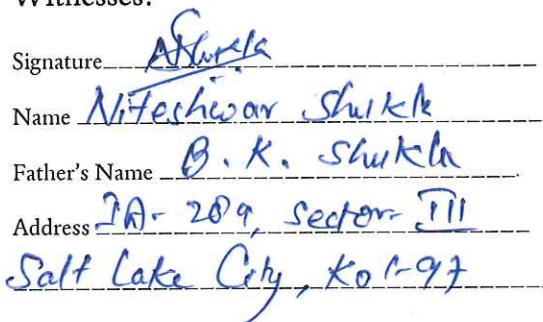 Witnesses:
Signature
Name Niteshwar Shukla
Father's Name B. K. Shukla
Address IA-289, Sector-III
Salt Lake City, Kol-97